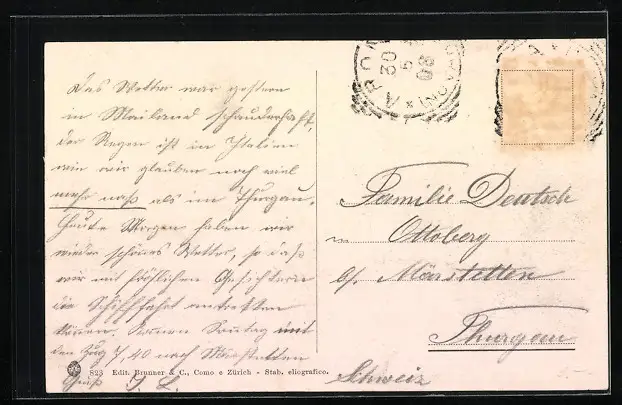 Das Wetter war gestern
in Mailand schauderhaft,
der Regen ist in Italien
wie wir glauben noch viel
mehr naß als im Thurgau.
Heute Morgen haben wir
wieder schönes Wetter, so daß
wir mit fröhlichen Gesichtern
die Schifffahrt antretten
können. Sonntag mit
dem Zug 7,40 nach Märstetten
Gruß
823 Edit. Brunner & C., Como e Zürich - Stab. eliografico.
ARONA
30 5 08
Familie Deutsch
in Ottoberg
b/. Märstetten
Thurgau
Schweiz